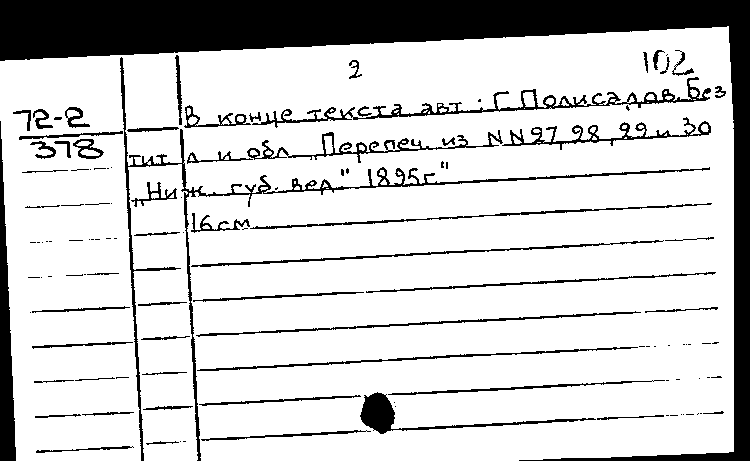 2
102
72-2
378
В конце текста авт.: Г. Полисадов. Без
тит. л. и обл. „Перепеч. из NN 27, 28, 29 и 30
„Ниж. губ. вед." 1895г."
16 см.